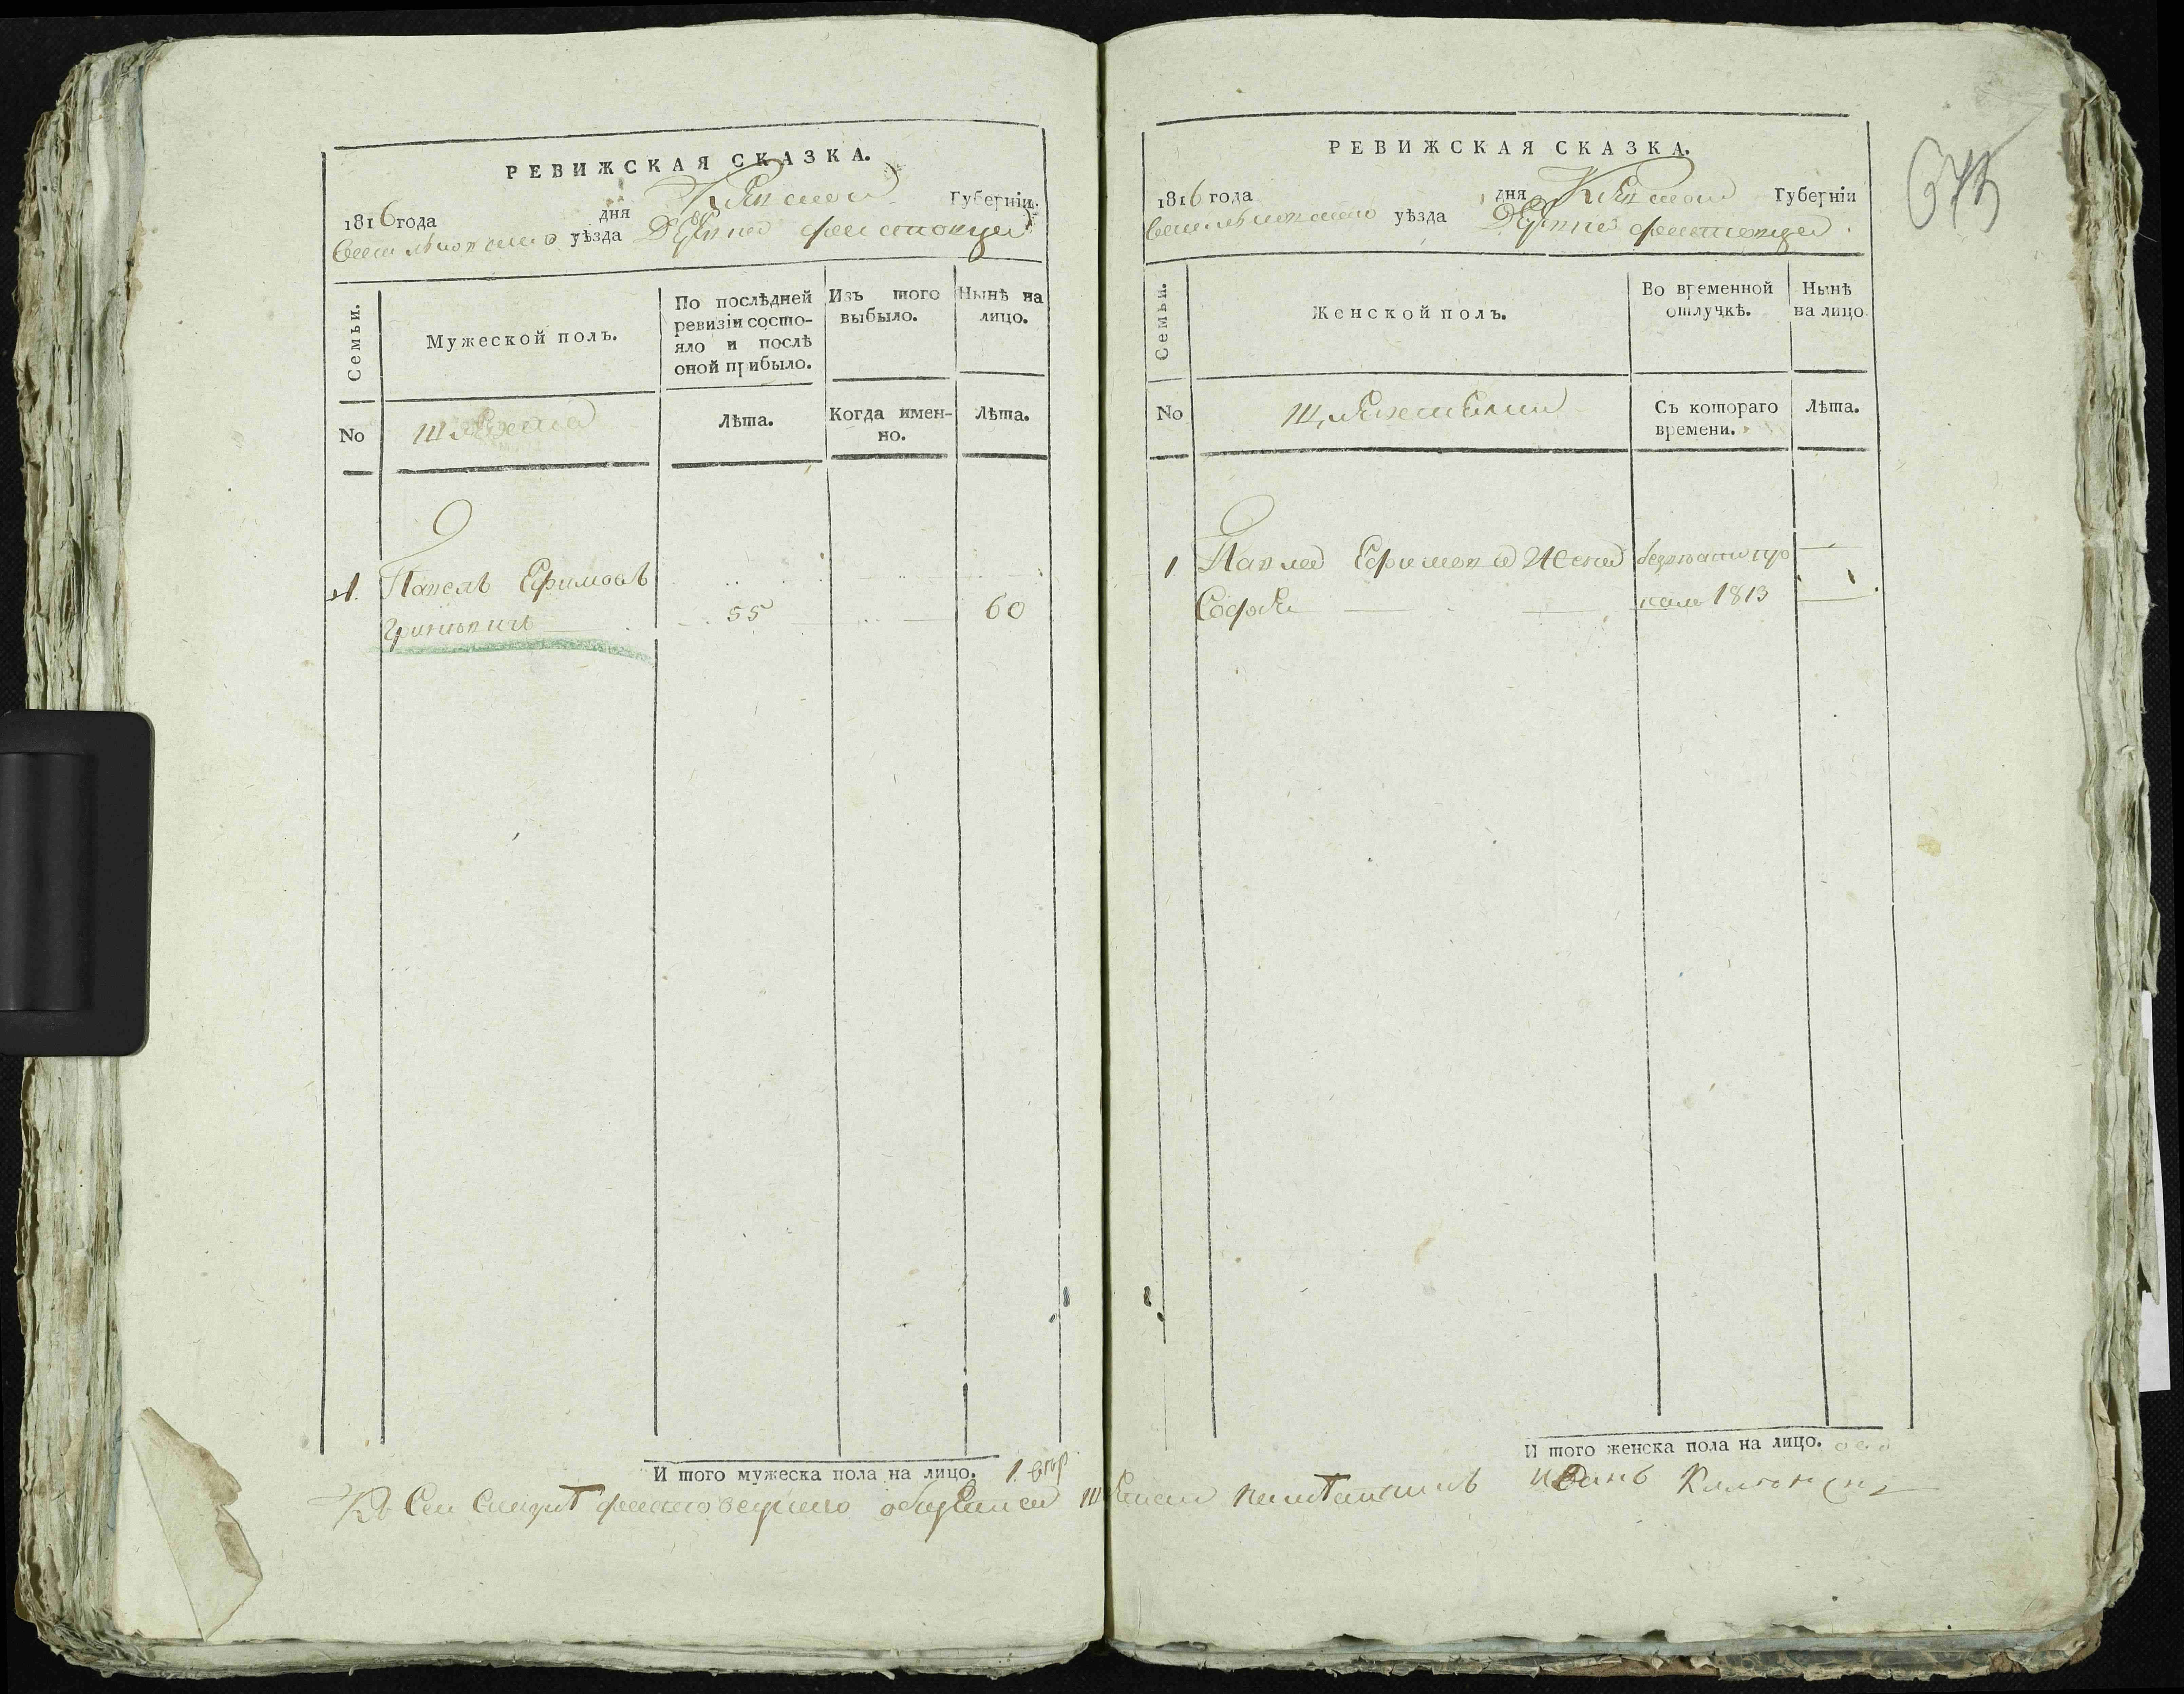 РЕВИЖСКАЯ СКАЗКА.
1816 года дня Киевской Губерніи,
Васильковскаго уѣзда Деревнѣ Фастовца
Семьи. Мужеской полъ. По послѣдней ревизіи состояло и послѣ оной прибыло. Изъ того выбыло. Нынѣ на лицо.
No Шляхта Лѣта. Когда именно. Лѣта.
1. Павелъ Ефимовъ
55 60
И того мужеска пола на лицо. 1.
РЕВИЖСКАЯ СКАЗКА.
1816 года дня Киевской Губерніи
Васильковскаго уѣзда Деревнѣ Фастовца.
Семьи. Женской полъ. Во временной отлучкѣ. Нынѣ на лицо
No Лѣта. Съ котораго времени.
1 Павла Ефимова Жена
Софья 1813
И того женска пола на лицо.
Къ Сей Иванъ
673